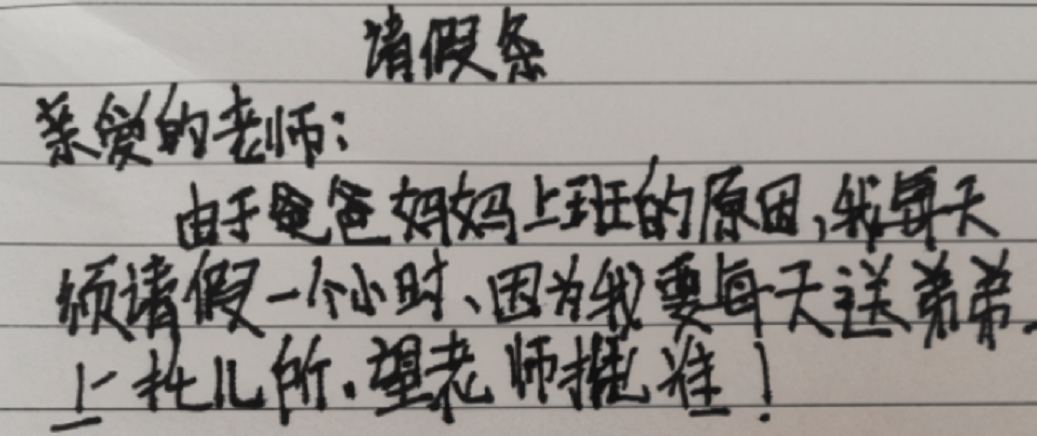 请假条
亲爱的老师:
由于爸爸妈妈上班的原因,我每天
须请假一个小时、因为我要每天送弟弟
上托儿所.望老师批准!